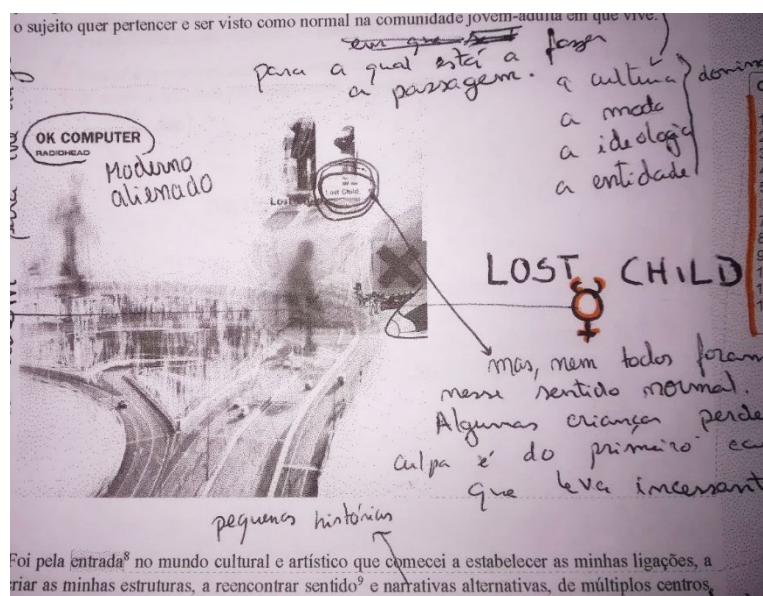 o sujeito quer pertencer e ser visto como normal na comunidade jovem-adulta em que vive.
em que
para a qual está a fazer
a passagem.
a cultura
a moda
a ideologia
a entidade
OK COMPUTER
RADIOHEAD
Moderno
alienado
Lost Child
LOST CHILD
mas, nem todos foram
nesse sentido normal.
Algumas crianças perde
culpa é do primeiro
que leva incessant
pequenas histórias
Foi pela entrada⁸ no mundo cultural e artístico que comecei a estabelecer as minhas ligações, a
riar as minhas estruturas, a reencontrar sentido⁹ e narrativas alternativas, de múltiplos centros,